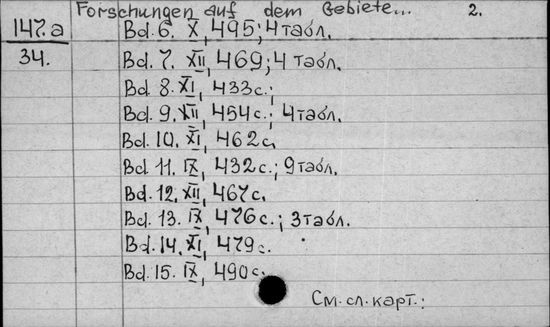 Forschungen auf dem Gebiete... 2.
147.a Bd. 6. X, 495; 4 табл.
34. Bd. 7. XII, 469; 4 табл.
Bd. 8. XI, 433с.;
Bd. 9. XII, 454с.; 4табл.
Bd. 10. XI, 462с.
Bd. 11. IX, 432с.; 9табл.
Bd. 12. XII, 467с.
Bd. 13. IX, 476с.; 3табл.
Bd. 14. XI, 479с.
Bd. 15. IX, 490с.
См. сл. карт.: